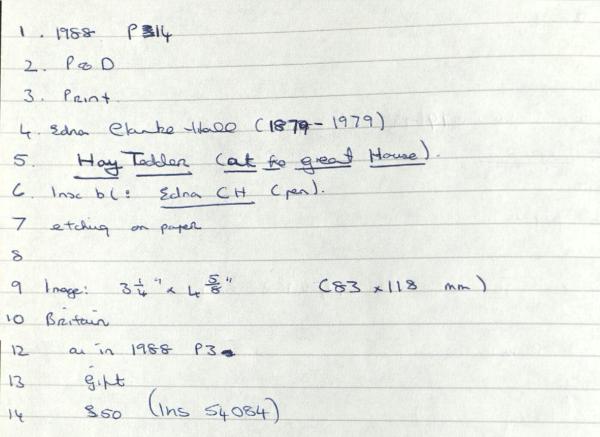 1. 1988 P314
2. P&D
3. Print.
4. Edna Clarke Hall (1879-1979)
5. Hay Tedder (at the great House).
6. Insc bl: Edna CH (pen).
7 etching on paper
8
9 Image: 3 1/4" x 4 5/8" (83 x 118 mm)
10 Britain
12 as in 1988 P3
13 gift
14 $50 (Ins 54084)